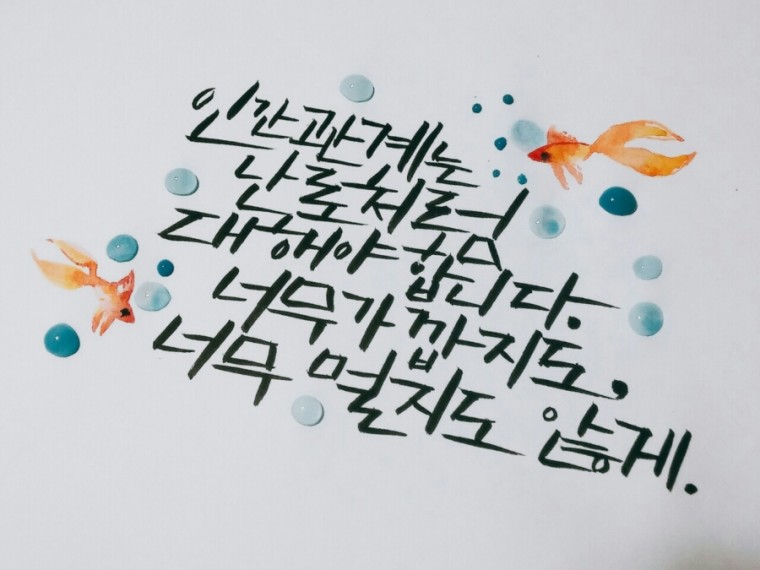 인간관계는
난로처럼
대해야 합니다.
너무 가깝지도,
너무 멀지도 않게.